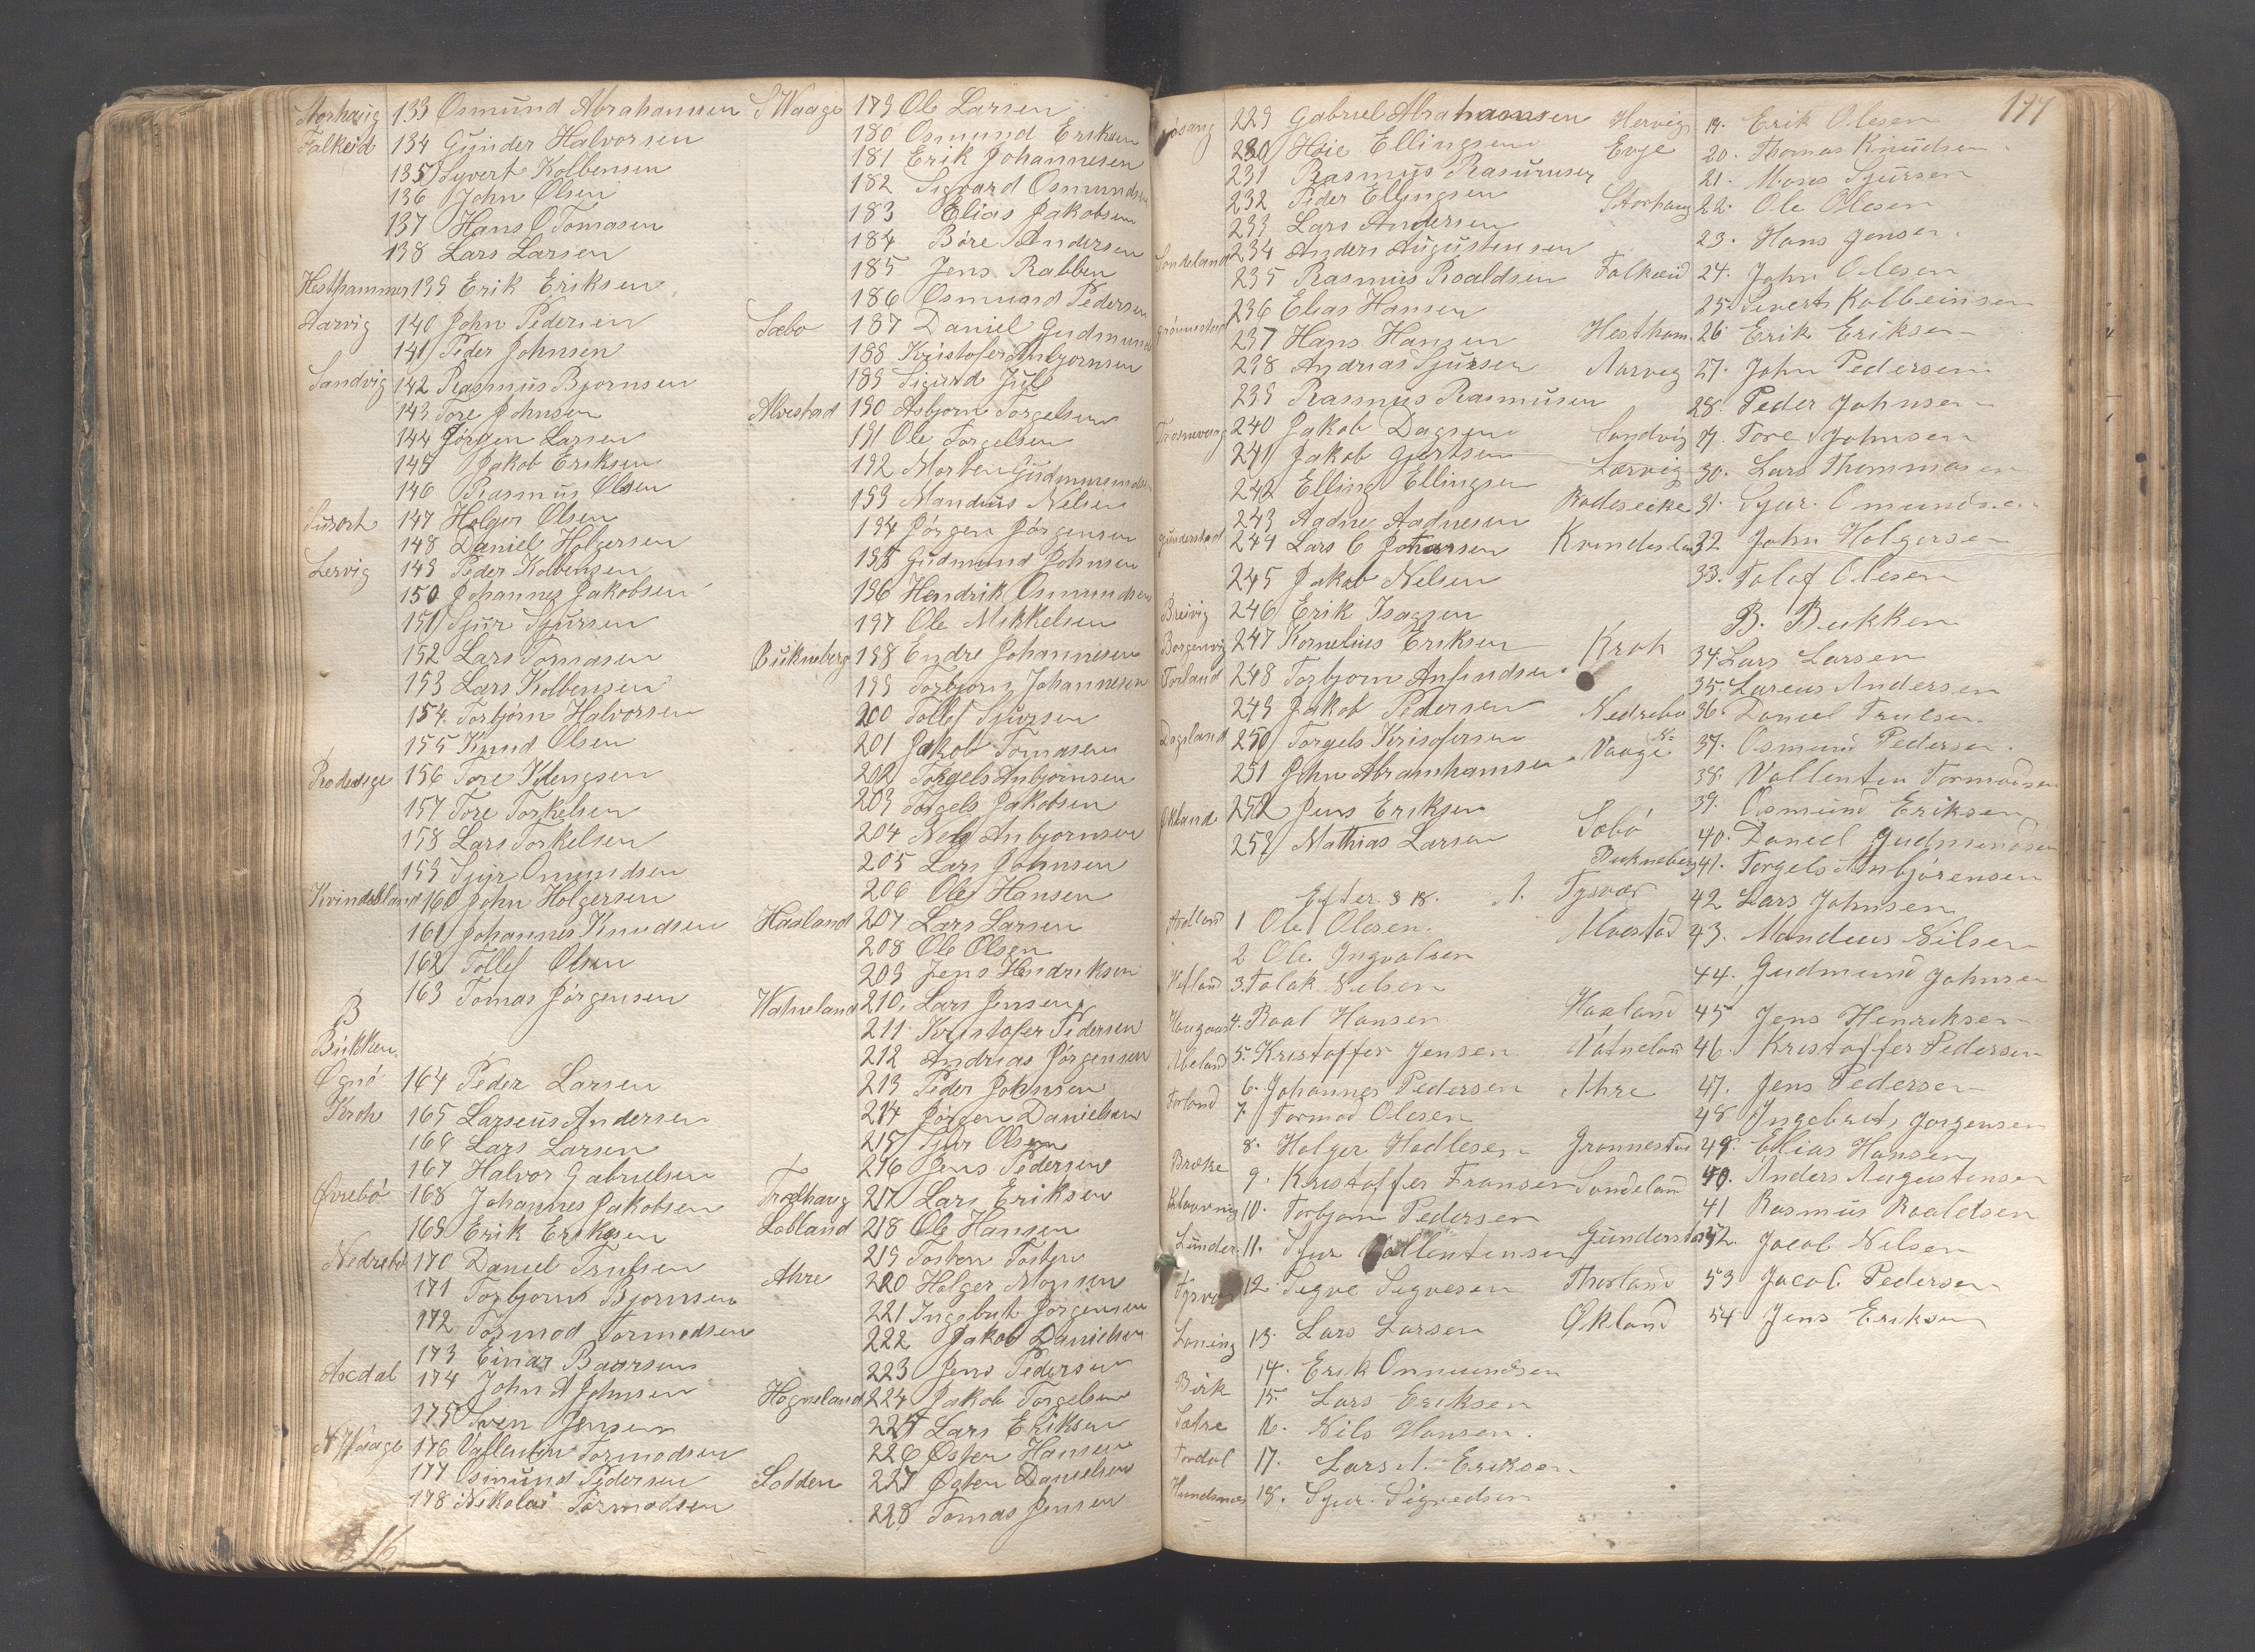 Storhaug 133 Osmund Abrahamsen
Falkeid 134 Gunder Halvorsen
135 Syvert Kolbensen
136 John Olsen
137 Hans O Tomasen
138 Lars Larsen
Hesthammer 139 Erik Eriksen
Aarvig 140 John Pedersen
141 Peder Johnsen
Sandvig 142 Rasmus Bjornsen
143 Tore Johnsen
144 Jørgen Larsen
145 Jakob Eriksen
146 Rasmus Olsen
147 Holger Olsen
148 Daniel Holgersen
Lervig 149 Peder Kolbensen
150 Johannes Jakobsen
151 Sjur Sjursen
152 Lars Tomasen
153 Lars Kolbensen
154 Torbjørn Halvorsen
155 Knud Olsen
156 Tore
157 Tore Torkelsen
158 Lars Torkelsen
159 Sjur Omundsen
Kvindesland 160 John Holgersen
161 Johannes Knudsen
162 Tollef Olsen
163 Tomas Jørgensen
B
Bukken
Ognø 164 Peder Larsen
Kroh 165 Larseus Andersen
166 Lars Larsen
167 Halvor Gabrielsen
Øvrebö 168 Johannes Jakobsen
169 Erik Eriksen
Nedrebö 170 Daniel Trulsen
171 Torbjorn Bjornsen
172 Tormod Tormodsen
173 Einar Baarsen
174 John A Johnsen
175 Sven Jensen
N Waage 176 Vallentin Tormodsen
177 Osmund Pedersen
178 Nikolai Tormodsen
16
S Waage 179 Ole Larsen
180 Osmund Eriksen
181 Erik Johannesen
182 Sigvard Osmundsen
183 Elias Jakobsen
184 Böre Andersen
185 Jens Rabben
186 Osmund Pedersen
Sæbo 187 Daniel Gudmund
188 Kristofer Anbjornsen
189 Sigurd Jul
Alvestad 190 Asbjorn Torgelsen
191 Ole Torgelsen
192 Morten Gudmundsen
193 Mandius Nelsen
194 Jørgen Jørgensen
195 Gudmund Johnsen
196 Hendrik Osmundsen
197 Ole Mikkelsen
Bukneberg 198 Endre Johannesen
199 Torbjorn Johannesen
200 Tollef Sjursen
201 Jakob Tomasen
202 Torgels Anbjornsen
203 Torgels Jakobsen
204 Nels Anbjornsen
205 Lars Johnsen
206 Ole Hansen
Haaland 207 Lars Larsen
208 Ole Olsen
209 Jens Hendriksen
Watneland 210 Lars Jensen
211 Kristofer Pedersen
212 Andrias Jørgensen
213 Peder Johnsen
214 Jörgen Danielsen
215 Sjur Olsen
216 Jens Pedersen
Trælhaug 217 Lars Eriksen
Lobland 218 Ole Hansen
219 Tosten Tosten
Ahre 220 Holger Monsen
221 Ingebret Jörgensen
222 Jakob Danielsen
223 Jens Pedersen
Hogneland 224 Jakob Torgelsen
225 Lars Eriksen
226 Østen Hansen
Lodden 227 Østen Danielsen
228 Tomas Jensen
177
229 Gabriel Abrahamsen
230 Höie Ellingsen
231 Rasmus Rasmusen
232 Peder Ellingsen
233 Lars Andersen
Sondeland 234 Anders Augustensen
235 Rasmus Roaldsen
236 Elias Hansen
Grönnestad 237 Hans Hansen
238 Andrias Sjursen
239 Rasmus Rasmusen
240 Jakob Dagsen
241 Jakob Gjertsen
242 Elling Ellingsen
243 Aadne Aadnesen
Gunderstad 244 Lars C Johansen
245 Jakob Nelsen
Breivig 246 Erik Isaksen
Borgenvig 247 Kornelius Eriksen
Torland 248 Torbjorn Anfindsen
249 Jakob Pedersen
Dagsland 250 Torgels Kristofersen
251 John Abramhamsen
Økland 252 Jens Eriksen
253 Mathias Larsen
Efter. § 18.
1 Ole Olesen.
2 Ole Ingvalsen
3. Falak Nelsen
4. Roal Hansen
5. Kristoffer Jensen
6. Johannes Pedersen
Forland 7. Tormod Olesen
8. Holger Hadlesen
Brække 9. Kristoffer Fransen
10. Torbjorn Pedersen
11. Sjur Vallentensen
12. Sigve Sigvesen
Loning 13. Lars Larsen
14. Erik Ommundsen
Birk 15. Lars Eriksen
Sætre 16. Nils Hansen.
Tordal 17. Lars A. Eriksen
Hundsnes 18. Sjur Sigvedsen
Hervig 19. Erik Olesen
Evje 20. Thomas Knudsen
21. Mons Sjursen
Storhaug 22. Ole Olesen
23. Hans Jensen.
Falkeid 24. John Olesen
25. Sivert Kolbeinsen
Hestham. 26. Erik Eriksen
Aarvig 27. John Pedersen
28. Peder Johnsen
Sandvig 29. Tore Johnsen
Lærvig 30. Lars Thommasen
31. Sjur Omundsen
Kvindesland 32 John Holgersen
33. Tolof Olesen
B. Bukken
Kroh 34. Lars Larsen
35. Lareus Andersen
Nedrebo 36. Daniel Trulsen.
N. Vaage 37. Osmund Pedersen.
38. Vallentin Tormodsen
39. Osmund Eriksen
Sæbö 40. Daniel Gudmundsen
Bukneberg 41. Torgels Anbjörensen
1. Tysvær 42 Lars Johnsen
Alvestad 43. Mandius Nilsen
44. Gudmund Johnsen
Haaland 45 Jens Henriksen
Vatneland 46. Kristoffer Pedersen
Ahre 47. Jens Pedersen
48 Ingebret Jorgensen
Grønnestad 49 Elias Hansen
Sondeland 40. Anders Augustensen
41 Rasmus Roaldsen
Gunderstad 52. Jacob Nilsen
Thorland 53 Jacob Pedersen
Økland 54 Jens Eriksen